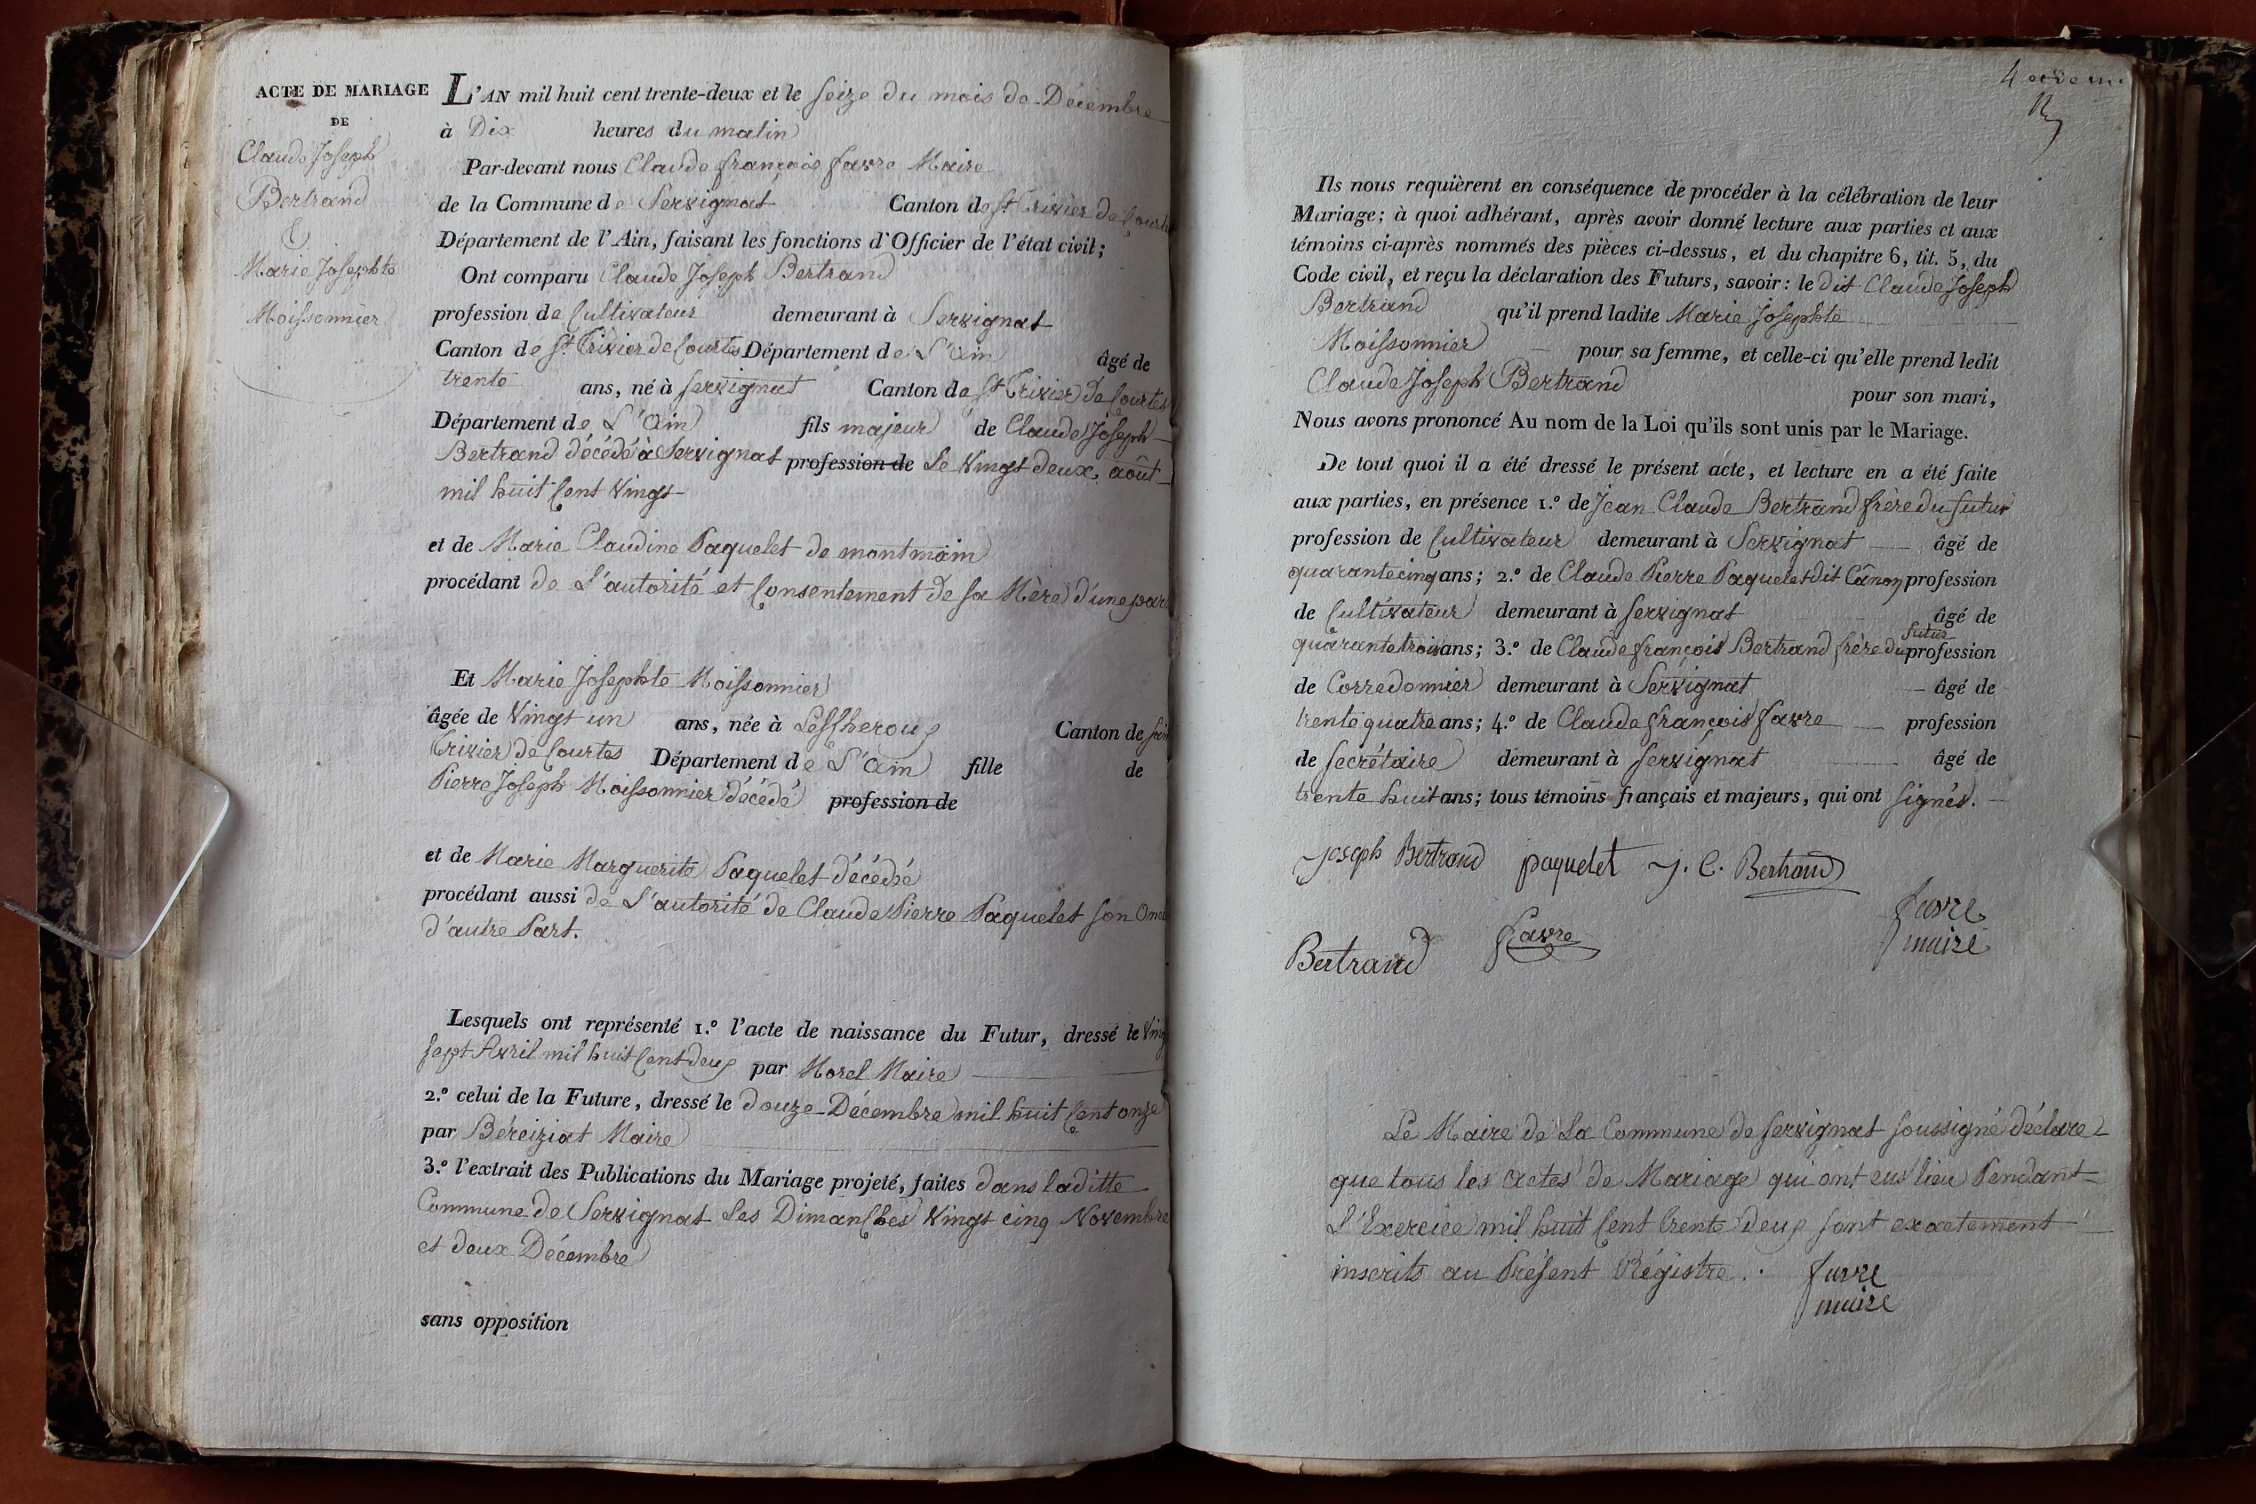 ACTE DE MARIAGE
DE
Claude Joseph
Bertrand
&
Marie Josephte
Moissonnier
L'AN mil huit cent trente-deux et le seize du mois de Décembre
à Dix heures du matin
Par-devant nous Claude françois favre Maire
de la Commune de Servignat Canton de St Trivier de Courtes
Département de l'Ain, faisant les fonctions d'Officier de l'état civil;
Ont comparu Claude Joseph Bertrand
profession de Cultivateur demeurant à Servignat
Canton de St Trivier de Courtes Département de L'ain âgé de
trente ans, né à servignat Canton de St Trivier de Courtes
Département de L'ain fils majeur de Claude Joseph
Bertrand décédé à Servignat profession de Le Vingt deux août
mil huit Cent Vingt
et de Marie Claudine Paquelet de montmain
procédant de L'autorité et Consentement de sa Mère d'une part
Et Marie Josephte Moissonnier
âgée de Vingt un ans, née à Lescheroux Canton de
Trivier de Courtes Département de L'ain fille de
Pierre Joseph Moissonnier décédé profession de
et de Marie Marguerite Paquelet décédée
procédant aussi de L'autorité de Claude Pierre Paquelet son
d'autre Part.
Lesquels ont représenté 1.º l'acte de naissance du Futur, dressé le Vingt
sept Avril mil huit Cent deux par Morel Maire
2.º celui de la Future, dressé le douze Décembre mil huit Cent onze
par Béreiziat Maire
3.º l'extrait des Publications du Mariage projeté, faites dans laditte
Commune de Servignat Les Dimanches Vingt cinq Novembre
et deux Décembre
sans opposition
4
Ils nous requièrent en conséquence de procéder à la célébration de leur
Mariage; à quoi adhérant, après avoir donné lecture aux parties et aux
témoins ci-après nommés des pièces ci-dessus, et du chapitre 6, tit. 5, du
Code civil, et reçu la déclaration des Futurs, savoir: le dit Claude Joseph
Bertrand qu'il prend ladite Marie Josephte
Moissonnier pour sa femme, et celle-ci qu'elle prend ledit
Claude Joseph Bertrand pour son mari,
Nous avons prononcé Au nom de la Loi qu'ils sont unis par le Mariage.
De tout quoi il a été dressé le présent acte, et lecture en a été faite
aux parties, en présence 1.º de Jean Claude Bertrand frère du futur
profession de Cultivateur demeurant à Servignat âgé de
quarante cinq ans; 2.º de Claude Pierre Paquelet dit Cânon profession
de Cultivateur demeurant à servignat âgé de
quarante trois ans; 3.º de Claude françois Bertrand frère du futur profession
de Corredonnier demeurant à Servignat âgé de
trente quatre ans; 4.º de Claude françois favre profession
de secrétaire demeurant à servignat âgé de
trente huit ans; tous témoins français et majeurs, qui ont signés.
Joseph Bertrand paquelet J. C. Bertrand
favre
maire
Bertrand favre
Le Maire de La Commune de servignat soussigné déclare
que tous les actes de Mariage qui ont eus lieu Pendant
L'Exercice mil huit Cent trente deux sont exactement
inscrits au Présent Régistre.
favre
maire